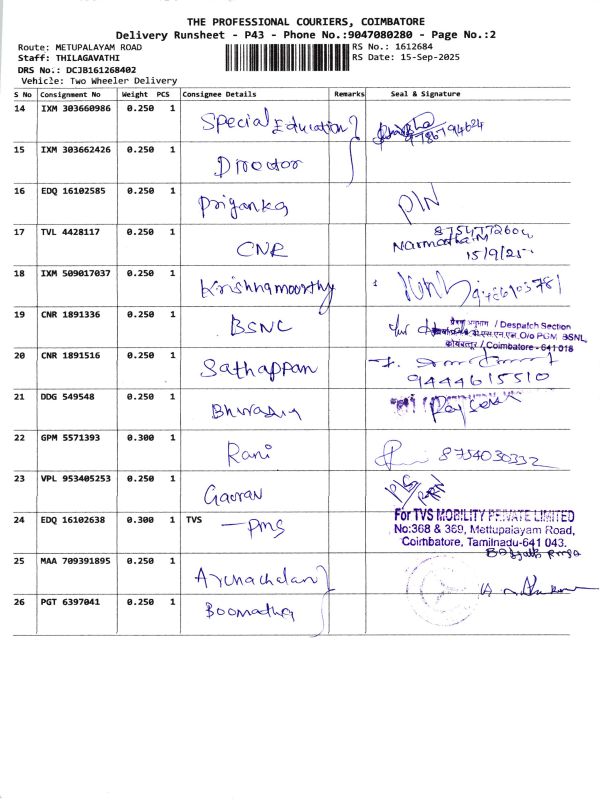 THE PROFESSIONAL COURIERS, COIMBATORE
Delivery Runsheet - P43 - Phone No.:9047080280 - Page No.:2
Route: METUPALAYAM ROAD RS No.: 1612684
Staff: THILAGAVATHI RS Date: 15-Sep-2025
DRS No.: DCJB161268402
Vehicle: Two Wheeler Delivery
S No Consignment No Weight PCS Consignee Details Remarks Seal & Signature
14 IXM 303660986 0.250 1 Special Education
15 IXM 303662426 0.250 1 Director
16 EDQ 16102585 0.250 1 Priyanka
17 TVL 4428117 0.250 1 CNR 8754772604
Narmatha M
15/9/25
18 IXM 509017037 0.250 1 Krishnamoorthy
19 CNR 1891336 0.250 1 BSNL / Despatch Section
O/o PGM, BSNL,
कोयंबत्तूर / Coimbatore - 641 018
20 CNR 1891516 0.250 1 Sathappan
9444615510
21 DDG 549548 0.250 1
22 GPM 5571393 0.300 1 Rani 8754030332
23 VPL 953405253 0.250 1 Gaurav
24 EDQ 16102638 0.300 1 TVS - PMS
For TVS MOBILITY PRIVATE LIMITED
No:368 & 369, Mettupalayam Road,
Coimbatore, Tamilnadu-641 043.
25 MAA 709391895 0.250 1 Arunachalam
26 PGT 6397041 0.250 1 Boomathy